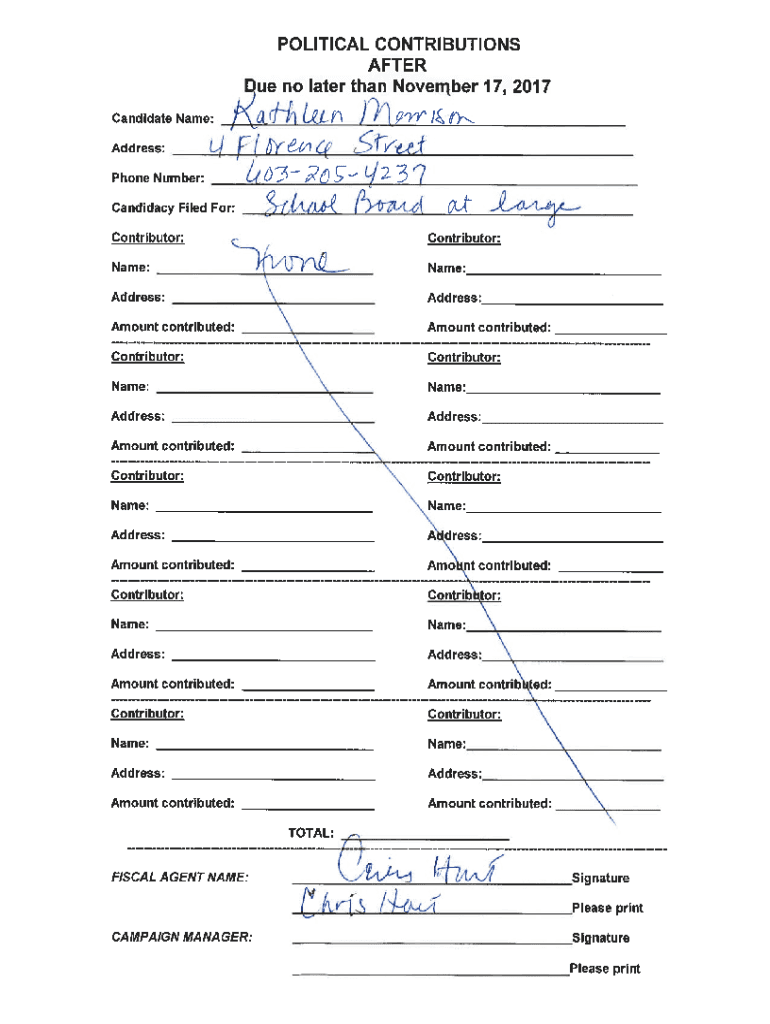 POLITICAL CONTRIBUTIONS
AFTER
Due no later than November 17, 2017
Candidate Name: Kathleen Morrison
Address: 4 Florence Street
Phone Number: 603-205-4237
Candidacy Filed For: School Board at large
Contributor: Contributor:
Name: None Name:
Address: Address:
Amount contributed: Amount contributed:
Contributor: Contributor:
Name: Name:
Address: Address:
Amount contributed: Amount contributed:
Contributor: Contributor:
Name: Name:
Address: Address:
Amount contributed: Amount contributed:
Contributor: Contributor:
Name: Name:
Address: Address:
Amount contributed: Amount contributed:
Contributor: Contributor:
Name: Name:
Address: Address:
Amount contributed: Amount contributed:
TOTAL:
FISCAL AGENT NAME: Signature
Chris Hart Please print
CAMPAIGN MANAGER: Signature
Please print